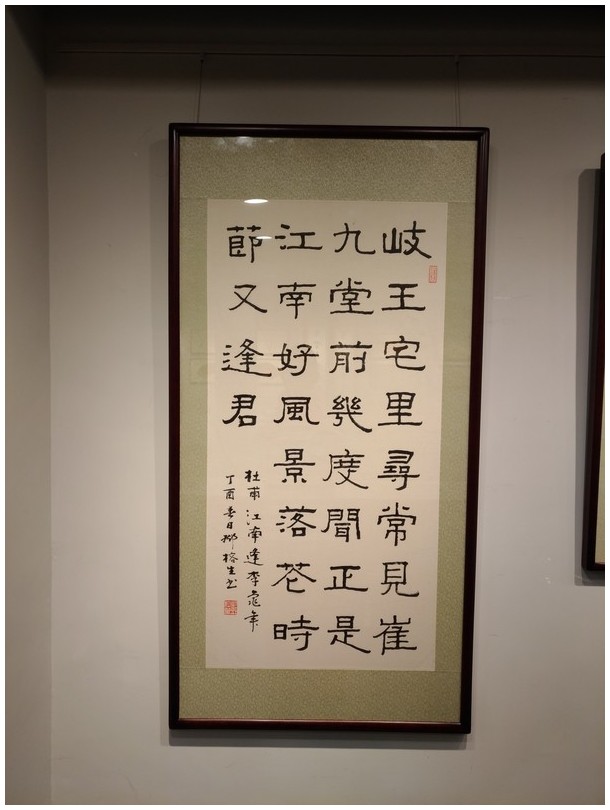 岐王宅里尋常見崔
九堂前幾度聞正是
江南好風景落花時
節又逢君
杜甫江南逢李龜年
丁酉春日 榕生书